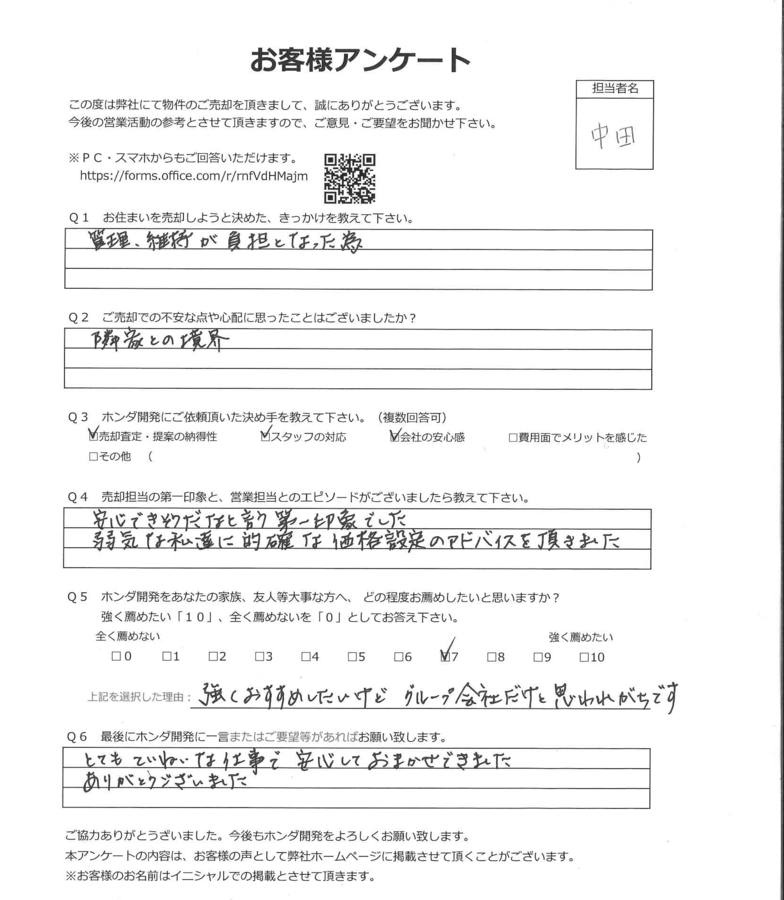 お客様アンケート
担当者名
中田
この度は弊社にて物件のご売却を頂きまして、誠にありがとうございます。
今後の営業活動の参考とさせて頂きますので、ご意見・ご要望をお聞かせ下さい。
※ＰＣ・スマホからもご回答いただけます。
https://forms.office.com/r/rnfVdHMajm
Ｑ１　お住まいを売却しようと決めた、きっかけを教えて下さい。
管理、維持が負担となった為
Ｑ２　ご売却での不安な点や心配に思ったことはございましたか？
隣家との境界
Ｑ３　ホンダ開発にご依頼頂いた決め手を教えて下さい。（複数回答可）
☑売却査定・提案の納得性　☑スタッフの対応　☑会社の安心感　□費用面でメリットを感じた
□その他　（　　　）
Ｑ４　売却担当の第一印象と、営業担当とのエピソードがございましたら教えて下さい。
安心できそうだなと言う第一印象でした
弱気な私達に的確な価格設定のアドバイスを頂きました
Ｑ５　ホンダ開発をあなたの家族、友人等大事な方へ、どの程度お薦めしたいと思いますか？
強く薦めたい「１０」、全く薦めないを「０」としてお答え下さい。
全く薦めない　強く薦めたい
□０　□１　□２　□３　□４　□５　□６　☑７　□８　□９　□10
上記を選択した理由：強くおすすめしたいけど グループ会社だけと思われがちです
Ｑ６　最後にホンダ開発に一言またはご要望等があればお願い致します。
とてもていねいな仕事で 安心しておまかせできました
ありがとうございました
ご協力ありがとうざいました。今後もホンダ開発をよろしくお願い致します。
本アンケートの内容は、お客様の声として弊社ホームページに掲載させて頂くことがございます。
※お客様のお名前はイニシャルでの掲載とさせて頂きます。